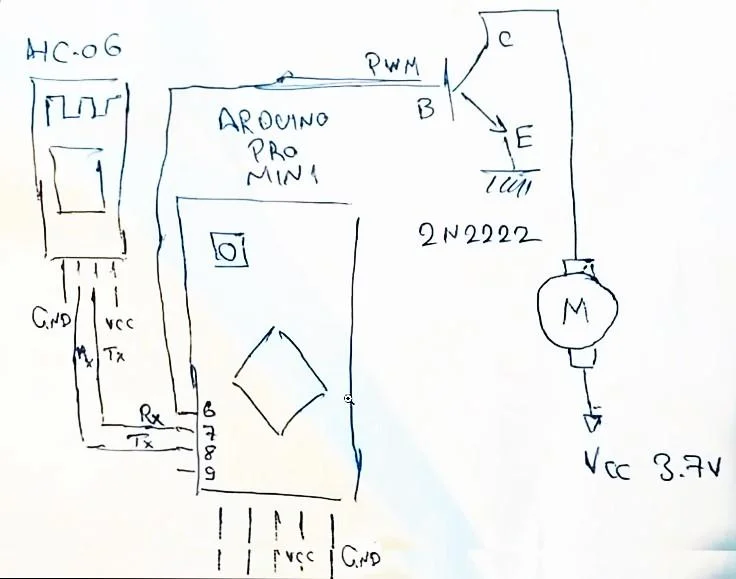 HC-06
PWM
C
B
E
ARDUINO
PRO
MINI
2N2222
GND
VCC
Rx
Tx
M
6
Rx
7
Tx
8
9
VCC 3.7V
VCC
GND